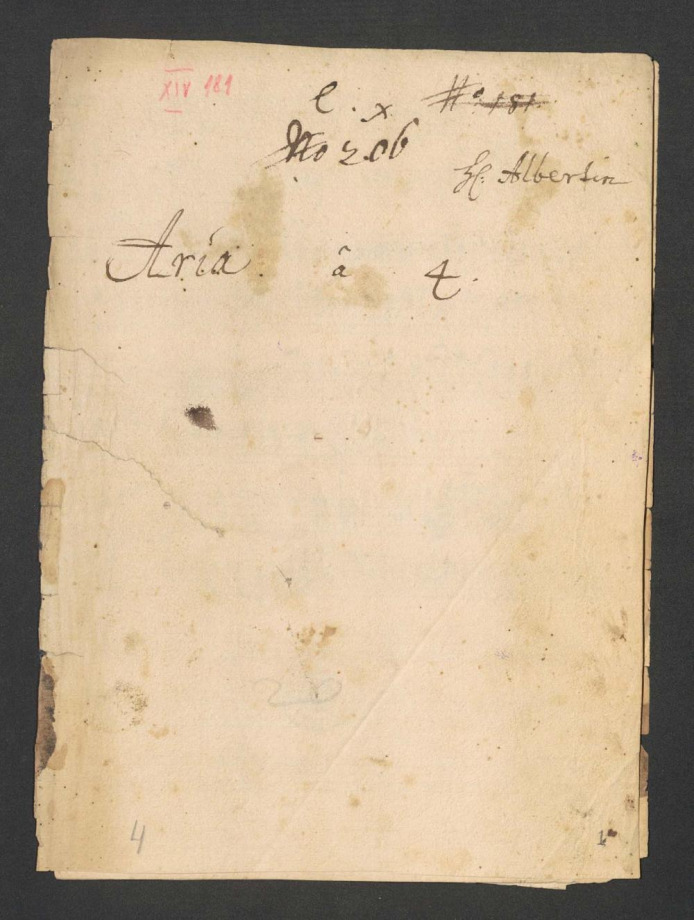 XIV 181
l. x N° 181.
No 206
H. Albertin
Aria. â 4.
4 1